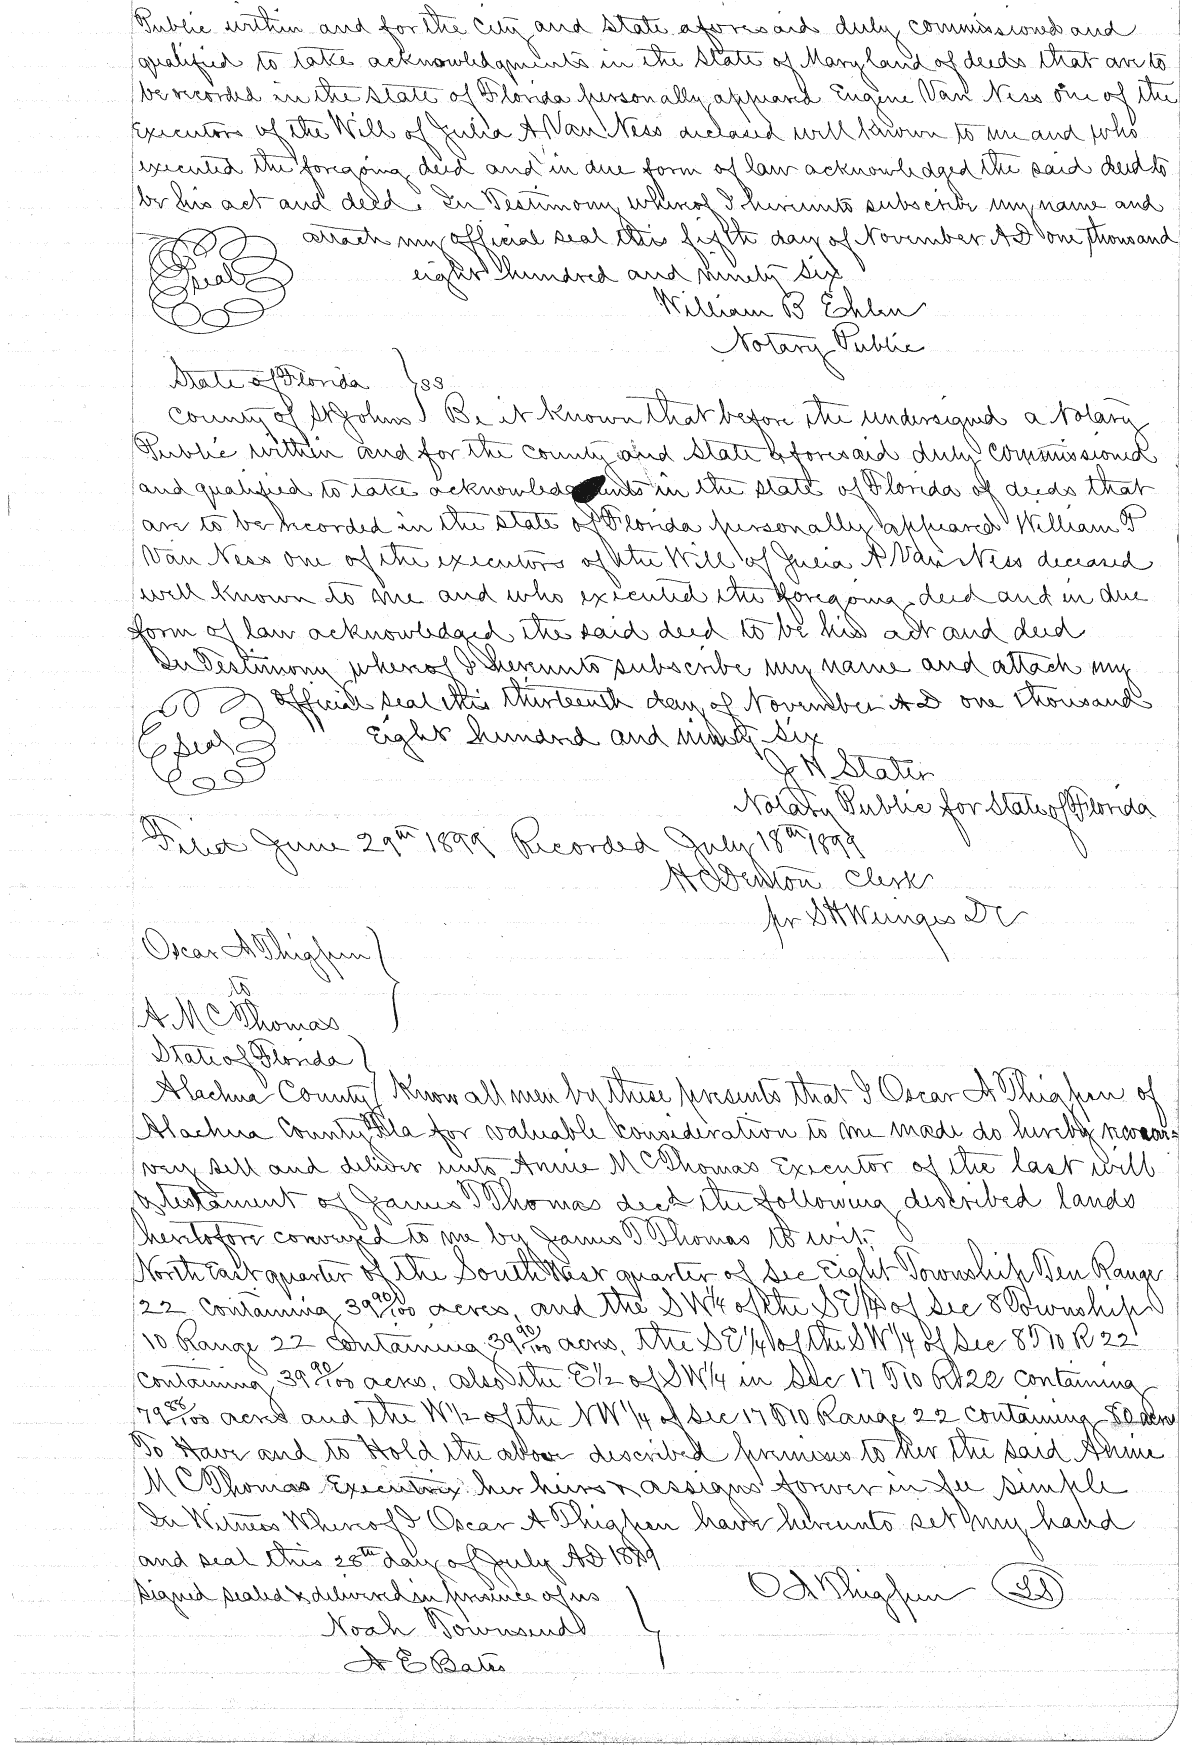 Public within and for the City and State aforesaid duly commissioned and
qualified to take acknowledgments in the State of Maryland of deeds that are to
be recorded in the State of Florida personally appeared Eugene Van Ness one of the
Executors of the Will of Julia A Van Ness deceased well known to me and who
executed the foregoing deed and in due form of law acknowledged the said deed to
be his act and deed. In Testimony whereof I hereunto subscribe my name and
attach my official seal this fifth day of November AD one thousand
Seal
eight hundred and ninety six
William B Ehlen
Notary Public
State of Florida } ss
County of St Johns } Be it known that before the undersigned a Notary
Public within and for the County and State aforesaid duly commissioned
and qualified to take acknowledgments in the State of Florida of deeds that
are to be recorded in the State of Florida personally appeared William P
Van Ness one of the executors of the Will of Julia A Van Ness deceased
well known to me and who executed the foregoing deed and in due
form of law acknowledged the said deed to be his act and deed
In Testimony whereof I hereunto subscribe my name and attach my
official seal this thirteenth day of November AD one thousand
Seal
Eight hundred and ninety six
J N Stater
Notary Public for State of Florida
Filed June 29th 1899 Recorded July 18th 1899
H C Denton Clerk
pr S H Wienges DC
Oscar A Thigpen }
to
A Mc Thomas
State of Florida }
Alachua County } Know all men by these presents that I Oscar A Thigpen of
Alachua County Fla for valuable consideration to me made do hereby
vey sell and deliver unto Annie Mc Thomas Executor of the last will
& testament of James T Thomas decd the following described lands
heretofore conveyed to me by James T Thomas to wit:
North East quarter of the South West quarter of Sec Eight Township Ten Range
22 containing 39 90/100 acres, and the SW1/4 of the SE1/4 of Sec 8 Township
10 Range 22 containing 39 90/100 acres, the SE1/4 of the SW1/4 of Sec 8 T10 R22
containing 39 90/100 acres, also the E1/2 of SW1/4 in Sec 17 T10 R22 containing
79 88/100 acres and the W1/2 of the NW1/4 of Sec 17 T10 Range 22 containing 80 acres
To Have and to Hold the above described premises to her the said Annie
Mc Thomas Executrix her heirs & assigns forever in fee simple
In Witness Whereof I Oscar A Thigpen have hereunto set my hand
and seal this 28th day of July AD 1889
Signed sealed & delivered in presence of us } O A Thigpen LS
Noah Townsend
A E Bates